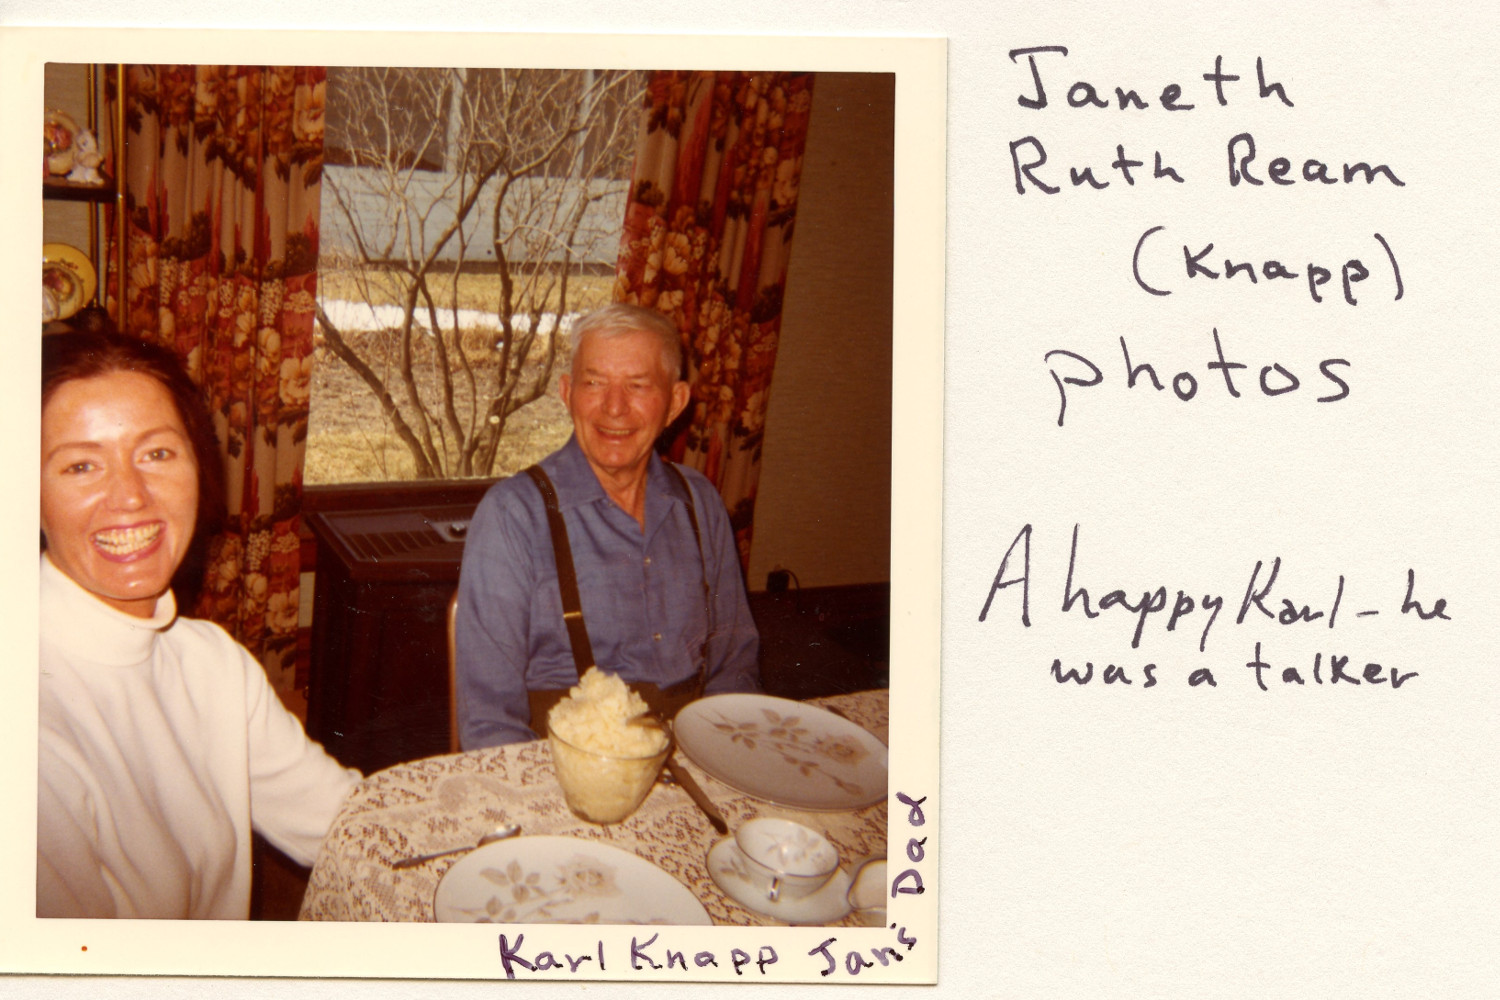 Janeth
Ruth Ream
(Knapp)
photos
A happy Karl - he
was a talker
Karl Knapp Jan's Dad